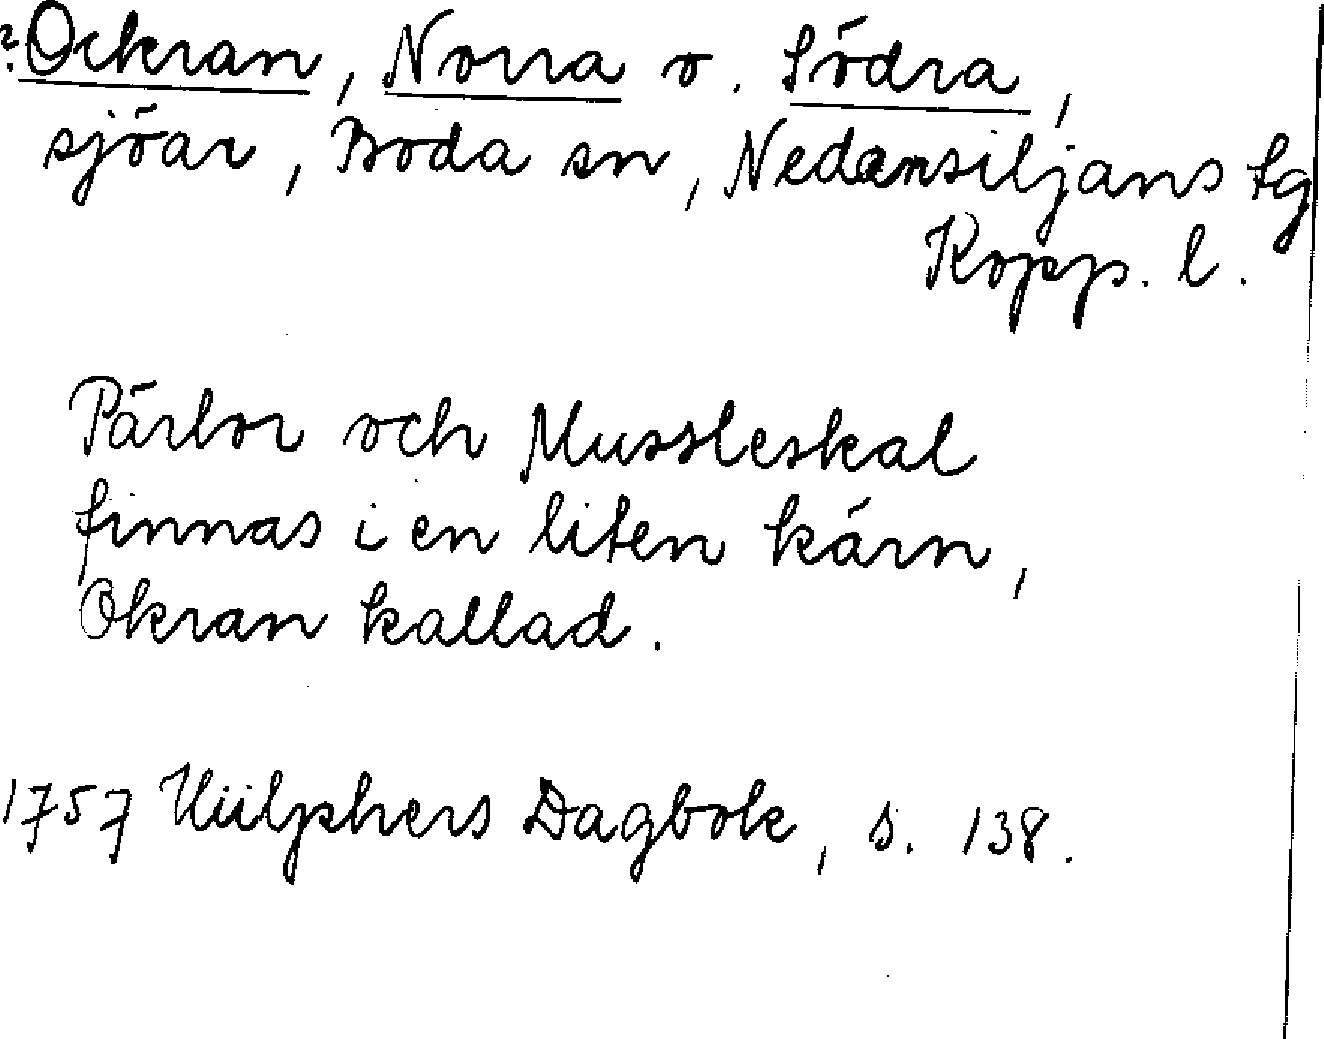 ? Ockran, Norra o. Södra,
sjöar, Boda sn, Nedansiljans tg
Kopp. l.
Pärlor och Mussleskal
finnas i en liten kärn,
Okran kallad.
1757 Hülphers Dagbok, s. 138.